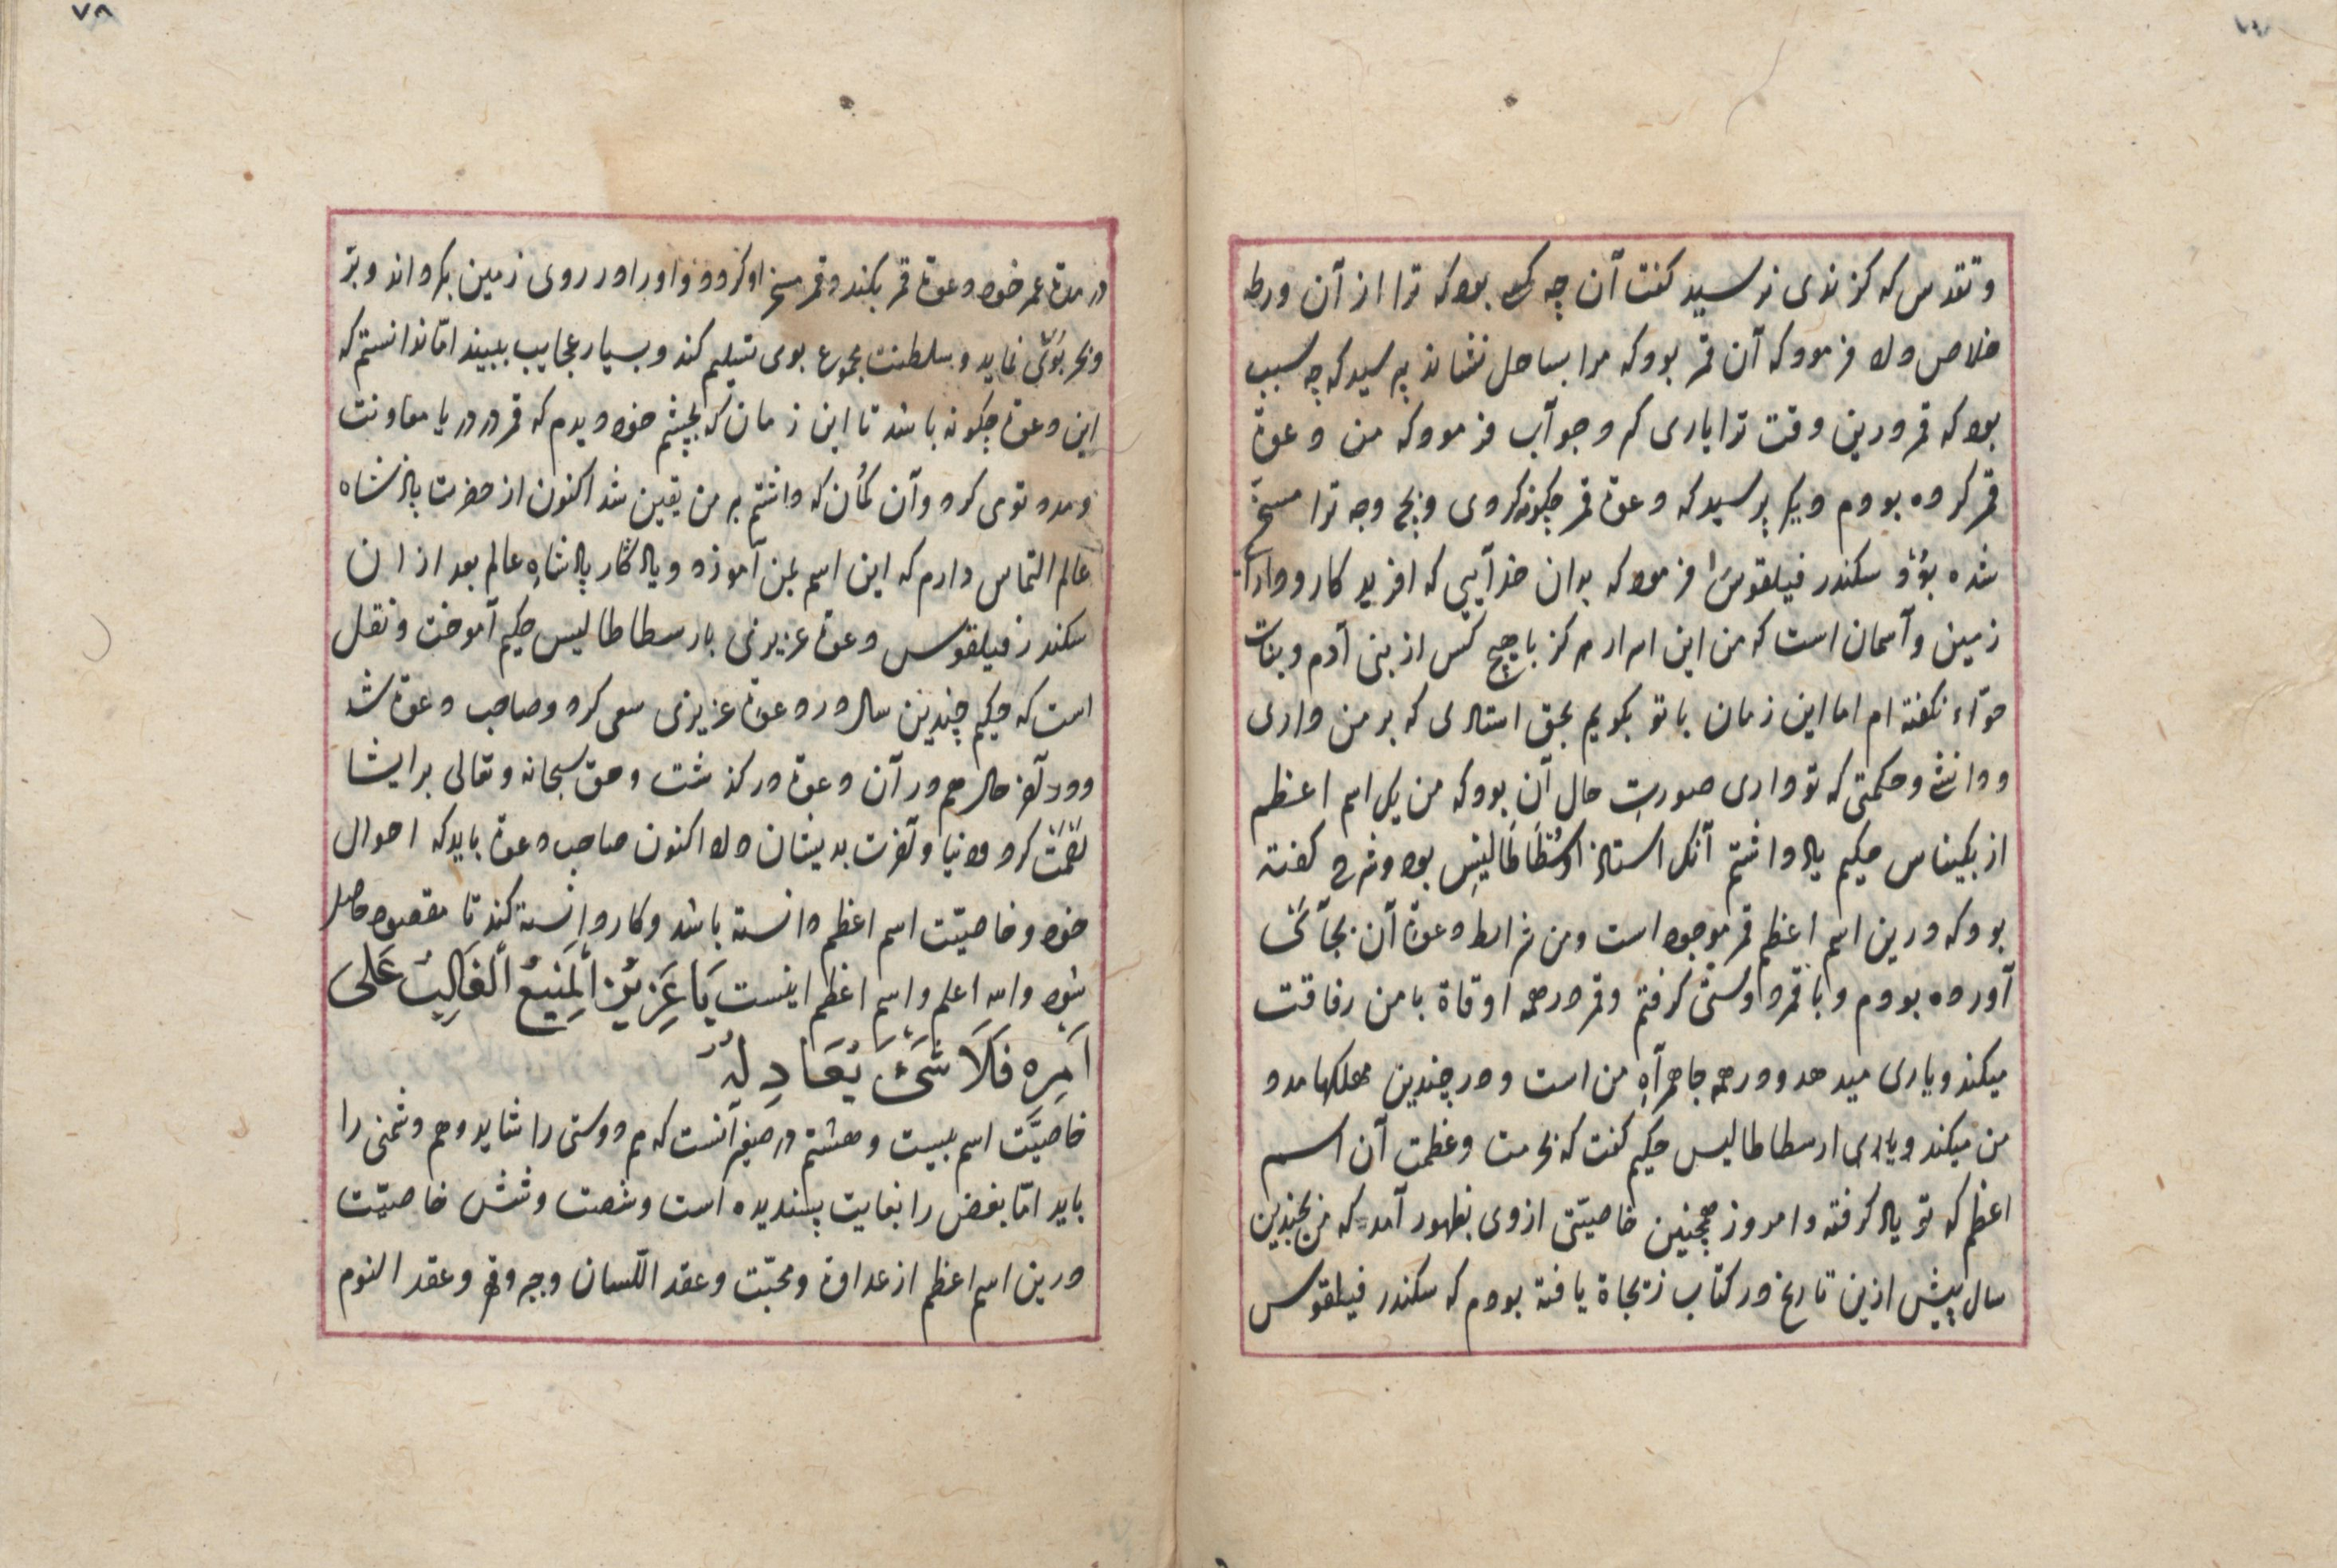 و تقدس که کزندی نرسید کفت آن چه کس بود که ترا از آن ورطه
خلاص داد فرمود که آن قمر بود که مرا بساحل نشاند پرسید که چه سبب
بود که قمر درین وقت ترا یاری کرد جوآب فرمود که من دعوة
قمر کرده بودم دیکر پرسید که دعوة قمر چکونه کردی و بچ وجه ترا مسخّر
شده بود سکندر فیلقوس فرمود که بدان خدآیی که افرید کار و دارآ
زمین و آسمان است که من این اسرار هرکز با هیچ کس از بنی آدم و بنات
حوّآء نکفته ام اما این زمان با تو بکویم بحق استادی که بر من داری
و دانش و حکمتی که تو داری صورتِ حال آن بود که من یک اسم اعظم
از بکیناس حکیم یاد داشتم آنک استاذ ارسُطَاطَالیسِ بود و شرح کفته
بود که درین اسم اعظم قمر موجود است و من شرایط دعوة آن بجآئی
آورده بودم و با قمر دوستی کرفتم و قمر در همه اوقاة با من رفاقت
میکند و یاری میدهد و در همه جا همرآهِ من است و در چندین مهلکها مدد
من میکند و یاری ارسطاطالیس حکیم کفت که بحرمت و عظمتِ آن اسم
اعظم که تو یاد کرفته و امروز همچنین خاصیّتی ازوی بظهور آمد که من بچندین
سال پیش ازین تاریخ در کتاب ز نجاة یافته بودم که سکندر فیلقوس
٧٨
در مدة عمر خود دعوة قمر بکند و قمر مسخر او کردد و او را در روی زمین بکرداند و برّ
و بحر بوی نماید و سلطنت مجموع بوی تسلیم کند و بسیار عجایب ببیند امّا ندانستم که
این دعوة چکونه باشد تا این زمان که بچشم خود دیدم که قمر در دریا معاونت
و مدد توی کرد و آن کمُان که داشتم بر من یقین شد اکنون از حضرت پادشاه
عالم التماس دارم که این اسم بمن آموزد و یادکار پادشاهِ عالم بعد از ان
سکندر فیلقوس دعوة عزیزی بارسطاطالیس حکیم آموخت و نقل
است که حکیم چندین سال در دعوة عزیزی سعی کرد و صاحب دعوة شد
و در آخر حال هم در آن دعوة درکذشت و حق سبحانه و تعالی بر ایشا
رَحْمَتْ کرد و دنیا و آخرت بدیشان داد اکنون صاحب دعوة باید که احوال
خود و خاصیّت اسم اعظم دانسته باشد و کار دانسته کند تا مقصود حاصل
شود والله اعلم و اسم اعظم اینست یَا عَزِیْزُ اَلمَنِیْعُ الْغَالِبُ عَلَی
اَمْرِهِ فَلَا شَیْءَ یُعَادِلُهُ
خاصیّت اسم بیست و هشتم در صغیر آنست که هم دوستی را شاید و هم دشمنی را
باید امّا بغض را بغایت پسندیده است و شصت و شش خاصیّت
درین اسم اعظم از عداوة و محبّت و عقد اللّسان و جرّ و قهر و عقد النوم